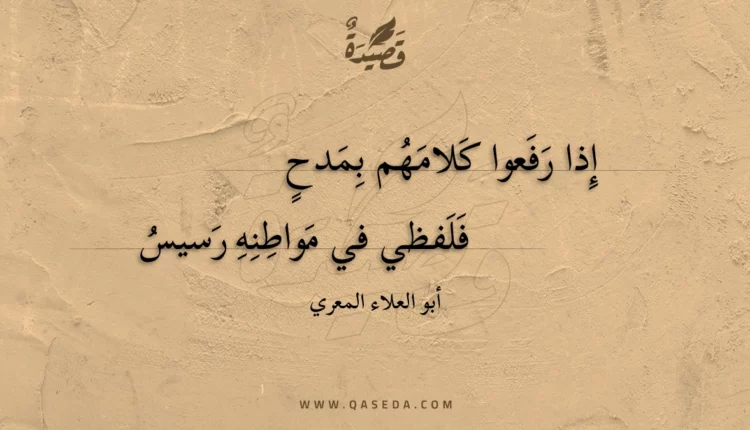 قَصِيدَةٌ
إِذا رَفَعوا كَلامَهُم بِمَدحٍ
فَلَفظي في مَواطِنِهِ رَسيسُ
أبو العلاء المعري
WWW.QASEDA.COM